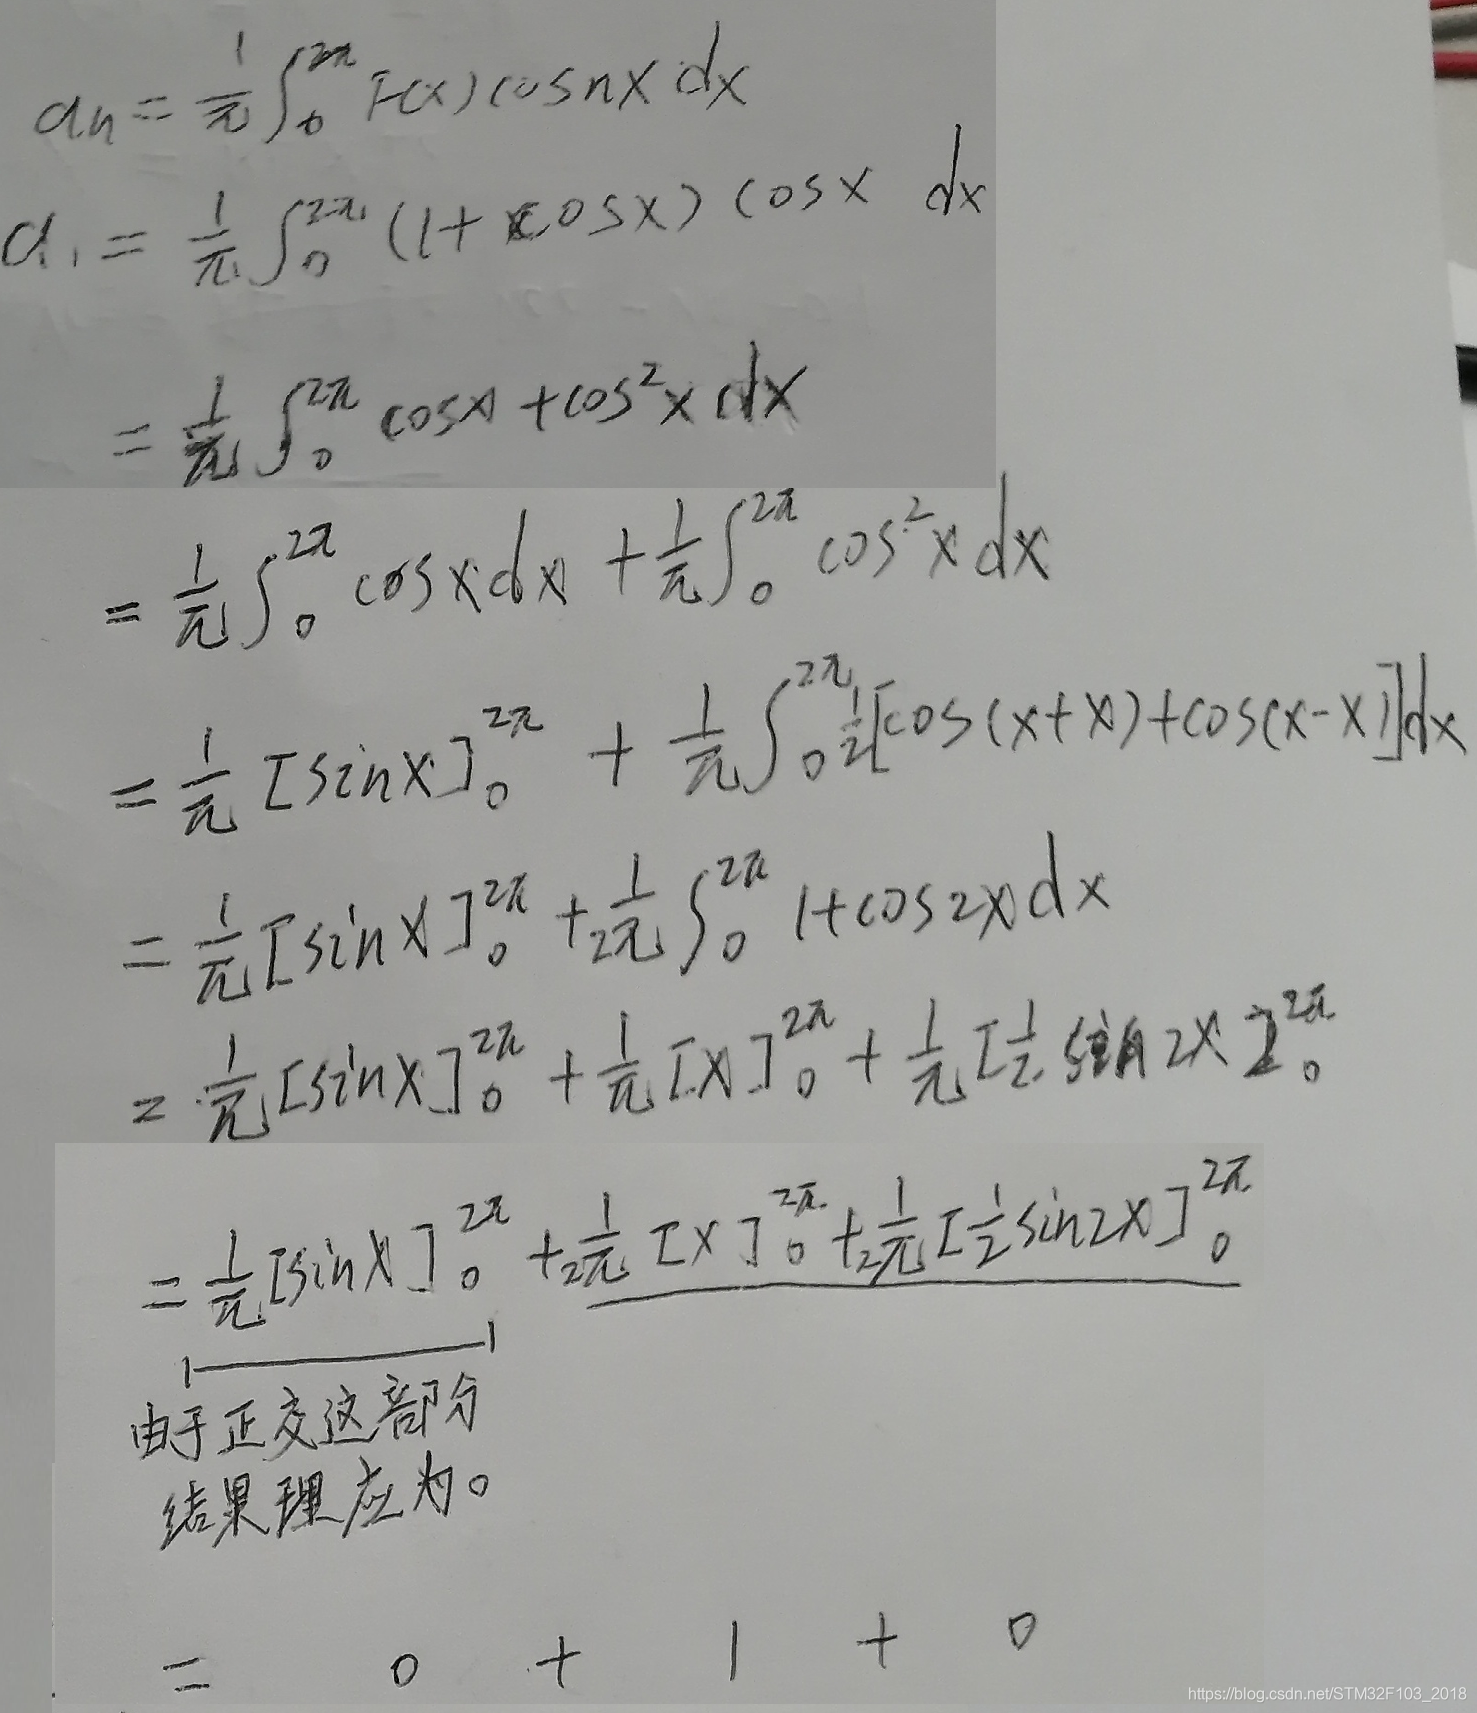 aₙ = 1/π ∫₀^2π F(x) cosnx dx
a₁ = 1/π ∫₀^2π (1+cosx) cosx dx
= 1/π ∫₀^2π cosx + cos²x dx
= 1/π ∫₀^2π cosxdx + 1/π ∫₀^2π cos²xdx
= 1/π [sinx]₀^2π + 1/π ∫₀^2π 1/2[cos(x+x)+cos(x-x)]dx
= 1/π [sinx]₀^2π + 1/2π ∫₀^2π 1+cos2xdx
= 1/π [sinx]₀^2π + 1/π [x]₀^2π + 1/π [1/2 sin2x]₀^2π
= 1/π [sinx]₀^2π + 1/2π [x]₀^2π + 1/2π [1/2 sin2x]₀^2π
由于正交这部分
结果理应为0
= 0 + 1 + 0
https://blog.csdn.net/STM32F103_2018